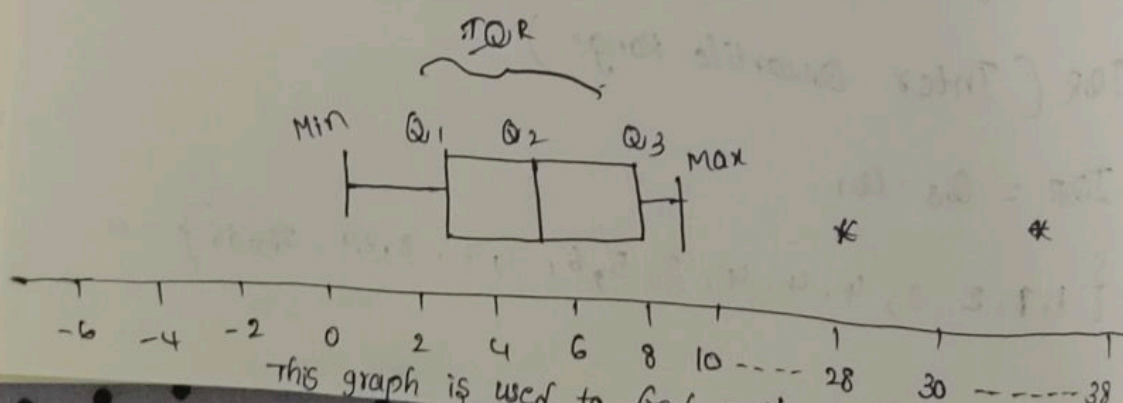 IQR
Min Q1 Q2 Q3 Max
* *
-6 -4 -2 0 2 4 6 8 10 ---- 28 30 ------- 38
This graph is used to